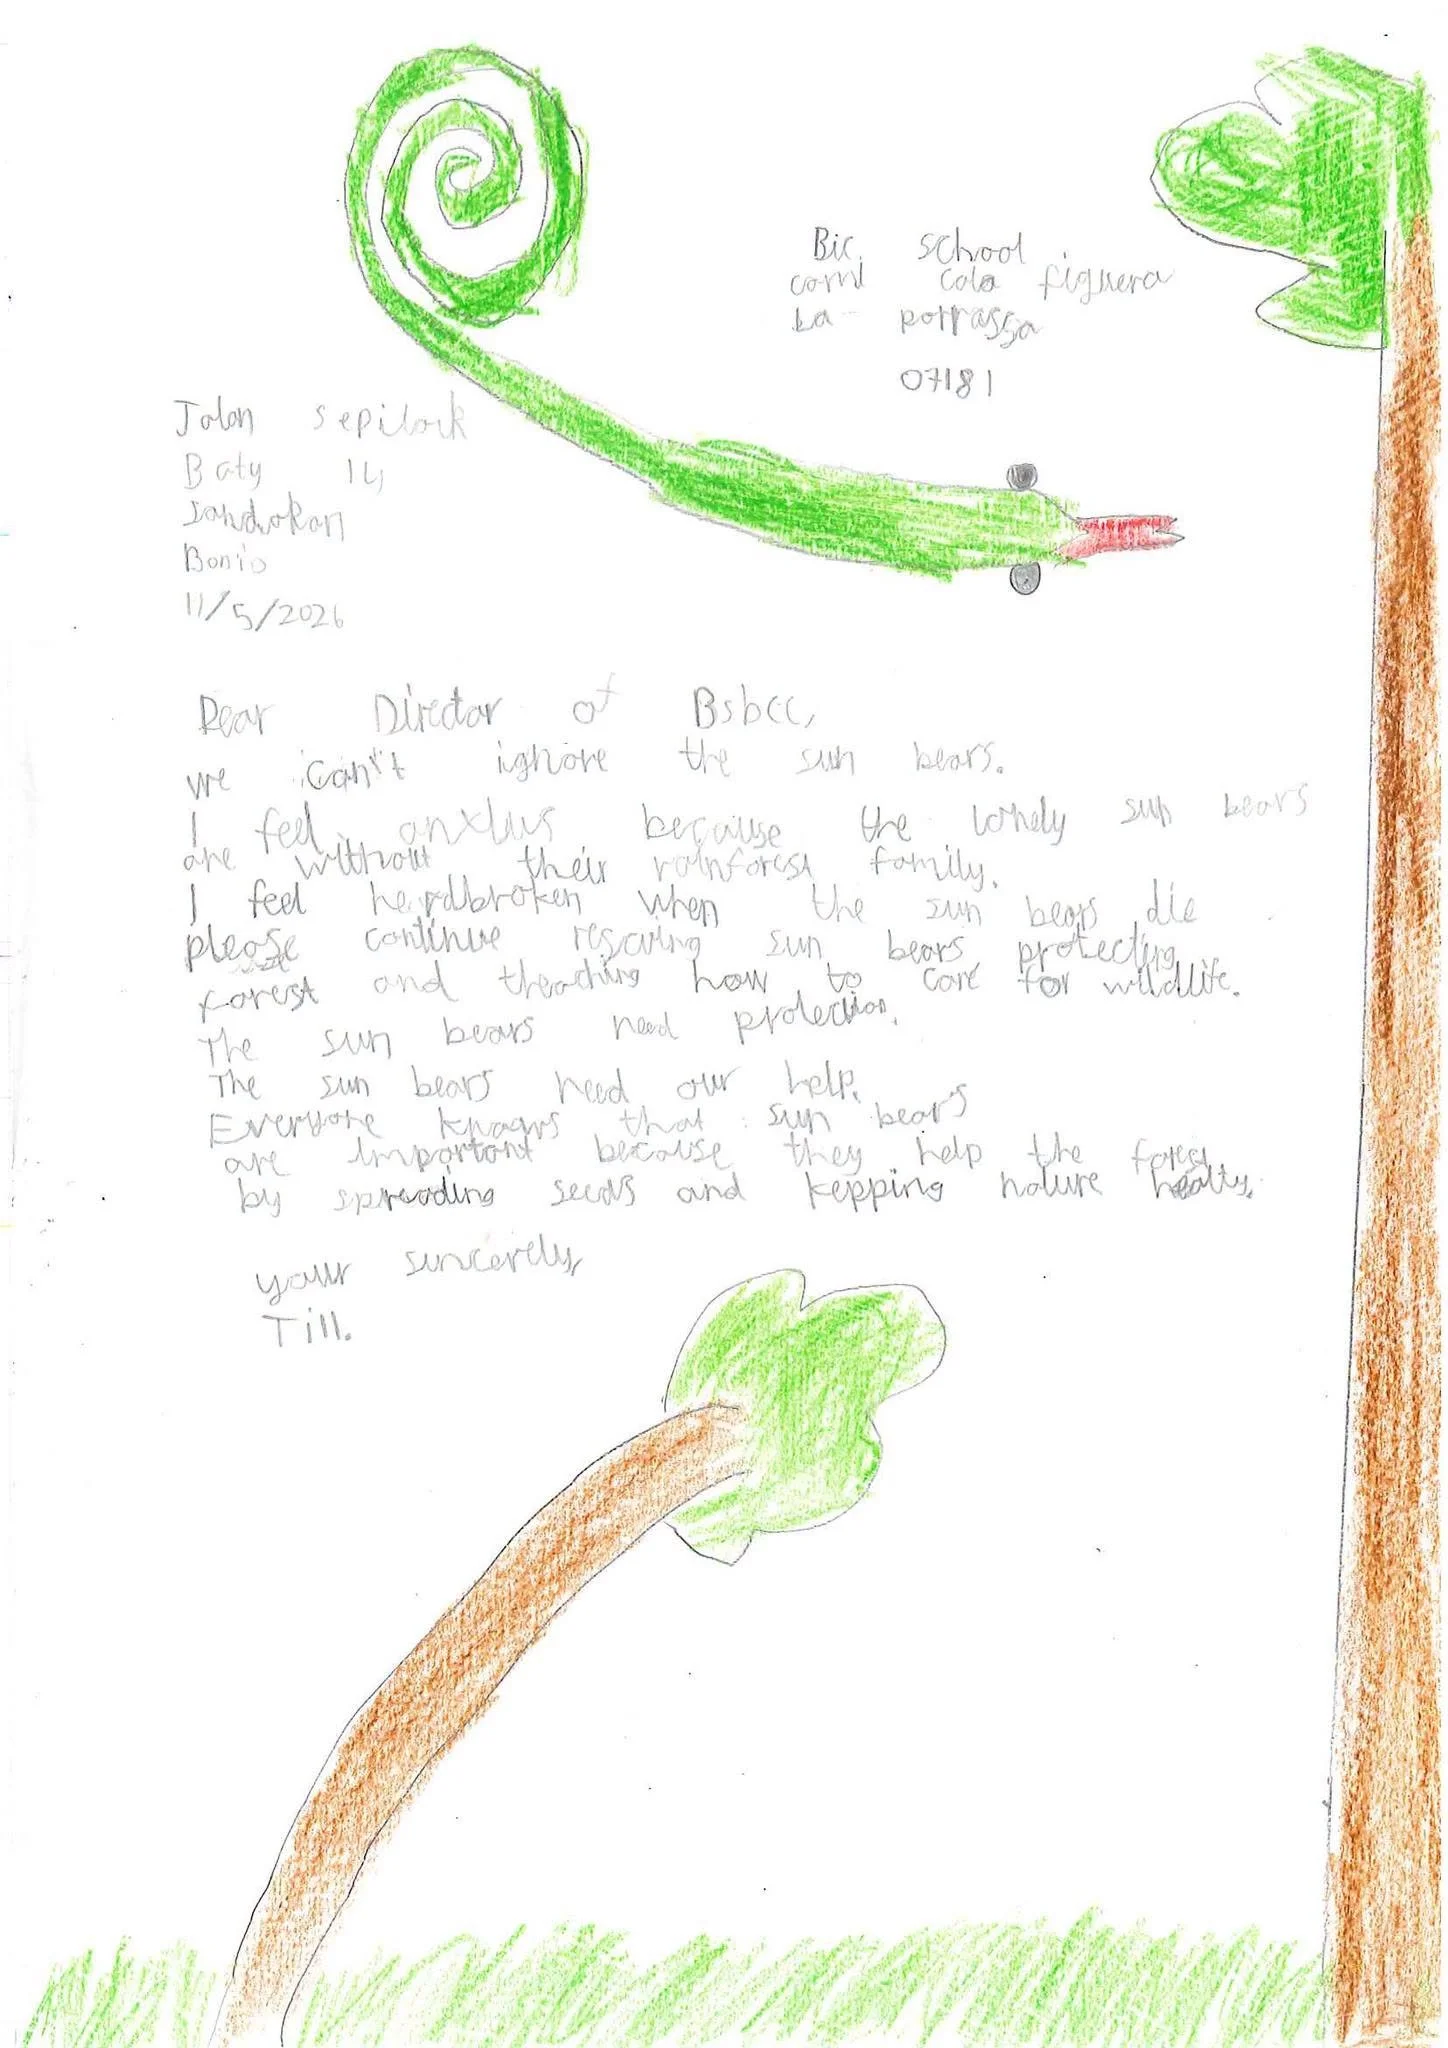 Bic school
cami cala figuera
La- porrassa
07181
Jalan sepilock
Baty 14
Sandvakan
Bonio
11/5/2026
Dear Director of Bsbcc,
we can't ignore the sun bears.
I feel anxius because the lonely sun bears
are without their rainforest family.
I feel heardbroken when the sun bears die
please continue rescuing sun bears protecting
forest and theaching how to care for wildlife.
The sun bears need protection.
The sun bears need our help.
Everyone knows that sun bears
are important because they help the forest
by spreading seeds and kepping nature healty.
your suncerely,
Till.